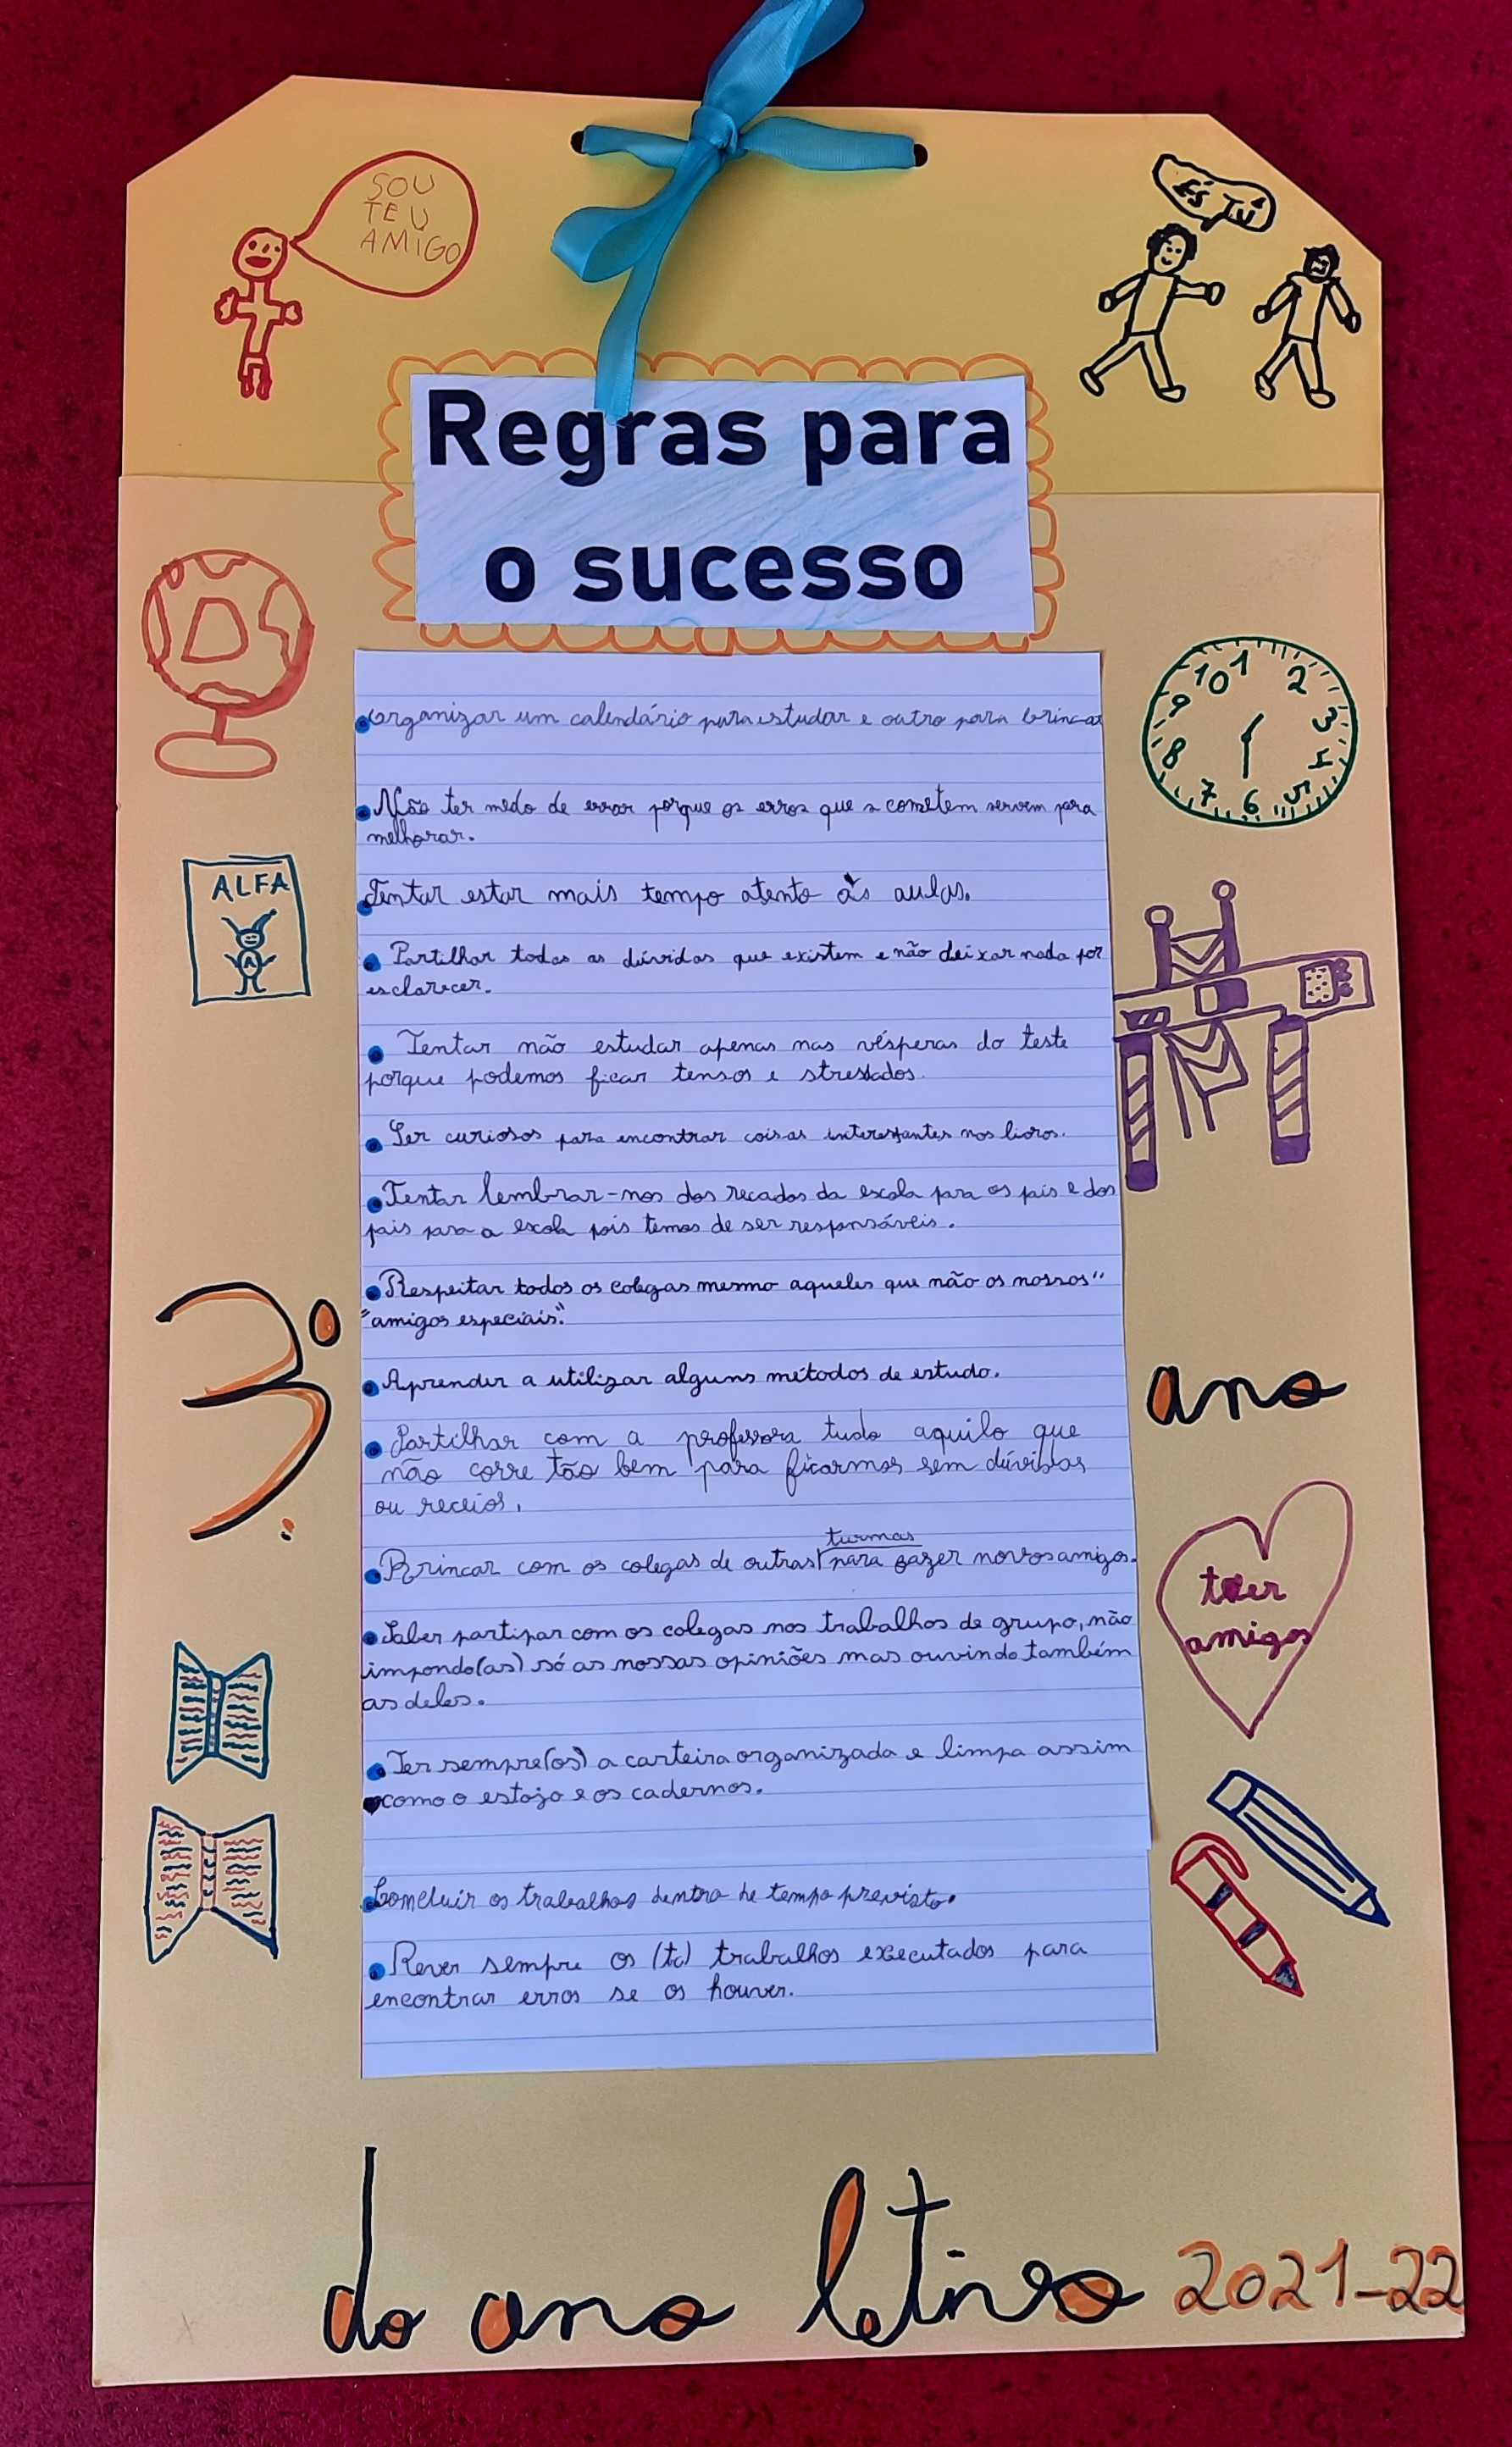 SOU
TEU
AMIGO
ÉS TU
Regras para
o sucesso
organizar um calendário para estudar e outro para brincar
Não ter medo de errar porque os erros que se cometem servem para
melhorar.
Tentar estar mais tempo atento às aulas.
Partilhar todas as dúvidas que existem e não deixar nada por
esclarecer.
Tentar não estudar apenas nas vésperas do teste
porque podemos ficar tensos e stressados.
Ser curiosos para encontrar coisas interessantes nos livros.
Tentar lembrar-nos dos recados da escola para os pais e dos
pais para a escola pois temos de ser responsáveis.
Respeitar todos os colegas mesmo aqueles que não os nossos"
"amigos especiais".
Aprender a utilizar alguns métodos de estudo.
Partilhar com a professora tudo aquilo que
não corre tão bem para ficarmos sem dúvidas
ou receios.
turmas
Brincar com os colegas de outras para fazer novos amigos.
Saber partipar com os colegas nos trabalhos de grupo, não
impondo(as) só as nossas opiniões mas ouvindo também
as deles.
Ter sempre(os) a carteira organizada e limpa assim
como o estojo e os cadernos.
Concluir os trabalhos dentro de tempo previsto.
Rever sempre os (ta) trabalhos executados para
encontrar erros se os houver.
10 1 2
9 3
8 4
7 6 5
ALFA
A
3.º
ano
ter
amigos
do ano letivo 2021-22